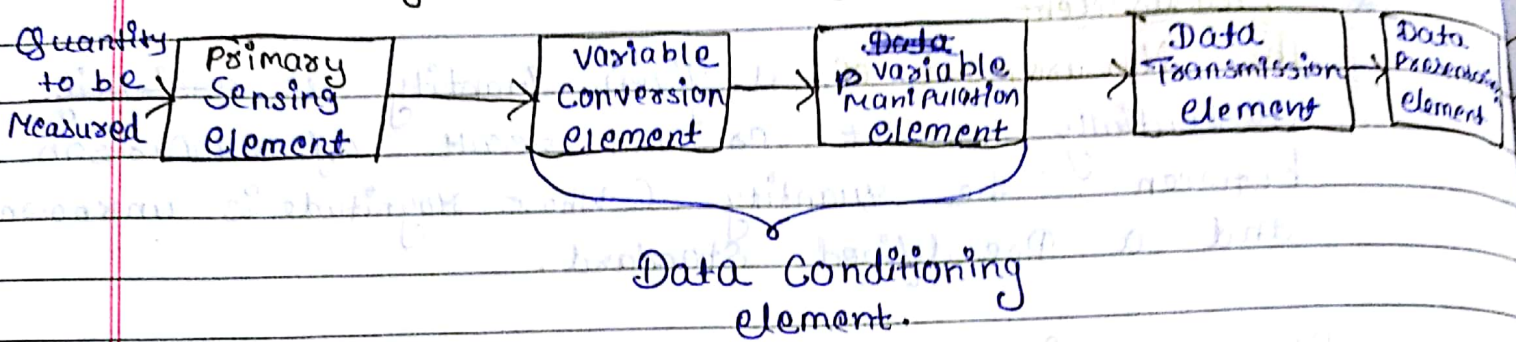 Quantity
to be
Measured
Primary
Sensing
element
variable
conversion
element
Data
variable
Manipulation
element
Data
Transmission
element
Data
element
Data Conditioning
element.